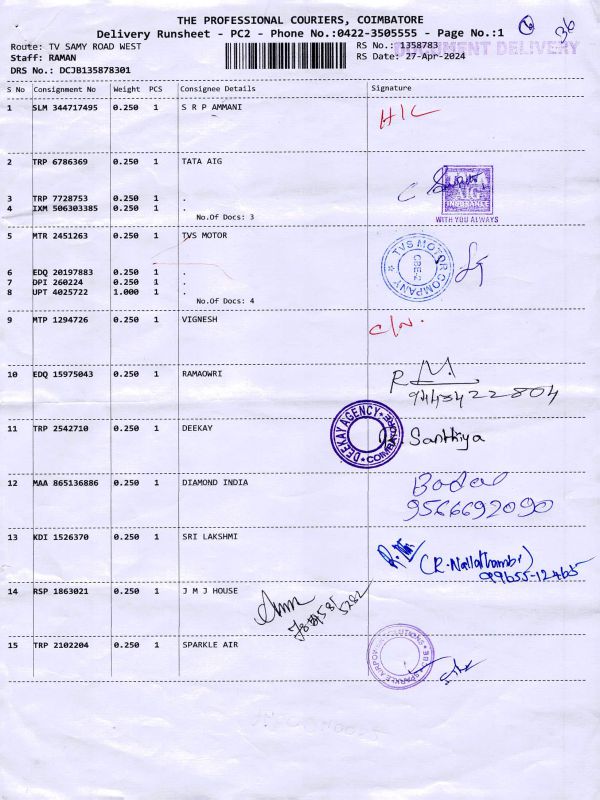 THE PROFESSIONAL COURIERS, COIMBATORE
Delivery Runsheet - PC2 - Phone No.:0422-3505555 - Page No.:1
36
Route: TV SAMY ROAD WEST
RS No.: 1358783
DOCUMENT DELIVERY
Staff: RAMAN
RS Date: 27-Apr-2024
DRS No.: DCJB135878301
S No Consignment No Weight PCS Consignee Details Signature
1 SLM 344717495 0.250 1 S R P AMMANI
2 TRP 6786369 0.250 1 TATA AIG
TATA AIG INSURANCE
WITH YOU ALWAYS
3 TRP 7728753 0.250 1 .
4 IXM 506303385 0.250 1 .
No.Of Docs: 3
5 MTR 2451263 0.250 1 TVS MOTOR
TVS MOTOR COMPANY
CBE-2
6 EDQ 20197883 0.250 1 .
7 DPI 260224 0.250 1 .
8 UPT 4025722 1.000 1 .
No.Of Docs: 4
9 MTP 1294726 0.250 1 VIGNESH C/N.
10 EDQ 15975043 0.250 1 RAMAOWRI
9443422804
11 TRP 2542710 0.250 1 DEEKAY Santhiya
DEEKAY AGENCY COIMBATORE
12 MAA 865136886 0.250 1 DIAMOND INDIA
9566692090
13 KDI 1526370 0.250 1 SRI LAKSHMI
(R. Nallathambi)
99655-12465
14 RSP 1863021 0.250 1 J M J HOUSE
15 TRP 2102204 0.250 1 SPARKLE AIR